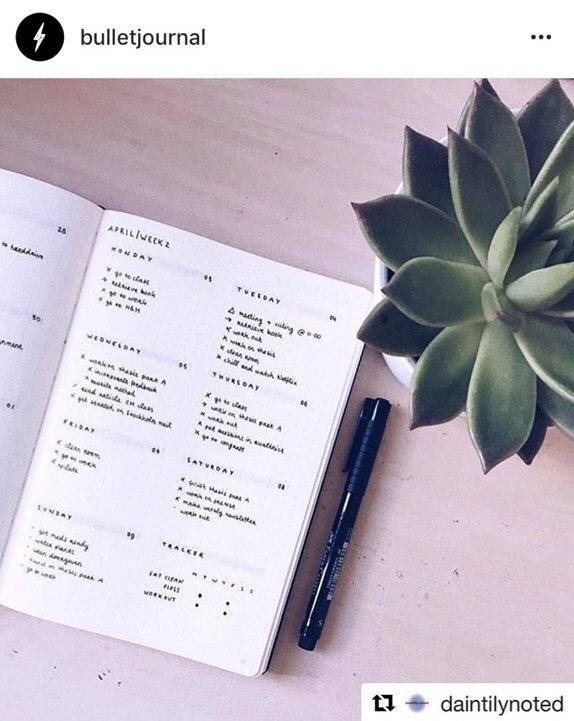 bulletjournal
28
to harddrive
30
01
APRIL/WEEK 2
MONDAY
03
x go to class
→ retrieve book
x go to work
x go to H&M
TUESDAY
04
meeting + voting @ 11:00
→ retrieve book
x work out
x work on thesis
x clean room
x chill and watch Netflix
WEDNESDAY
05
x work on thesis part A
x incorporate feedback
x rewrite method
/ read article CM class
x get started on Stockholm mail
THURSDAY
06
x go to class
→ work on thesis part A
x work out
x put sessions in
x go to congress
FRIDAY
x clean room
x go to work
x
SATURDAY
08
x finish thesis part A
x work on
x make weekly newsletter
· work out
SUNDAY
09
· get meds ready
· water plants
· clean
· hand in thesis part A
· go to work
TRACKER
M T W T F S S
EAT CLEAN
FLOSS
WORKOUT
S
daintilynoted